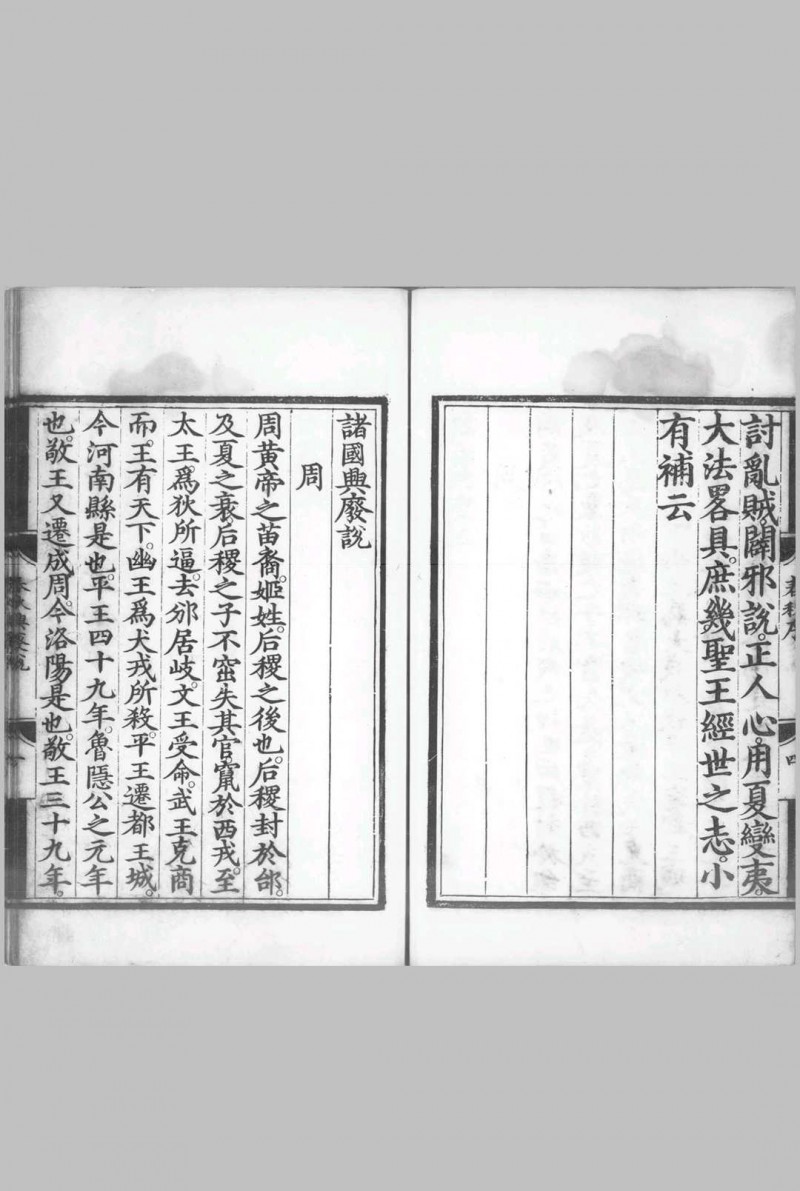 討亂賊。闢邪說。正人心。用夏變夷。
大法畧具。庶幾聖王經世之志。小
有補云
諸國興廢說
周
周黃帝之苗裔。姬姓。后稷之後也。后稷封於邰。
及夏之衰。后稷之子不窋失其官。竄於西戎。至
太王爲狄所逼。去邠居岐。文王受命。武王克商
而。王有天下。幽王爲犬戎所殺。平王遷都王城。
今河南縣是也。平王四十九年。魯隱公之元年
也。敬王又遷成周。今洛陽是也。敬王三十九年。